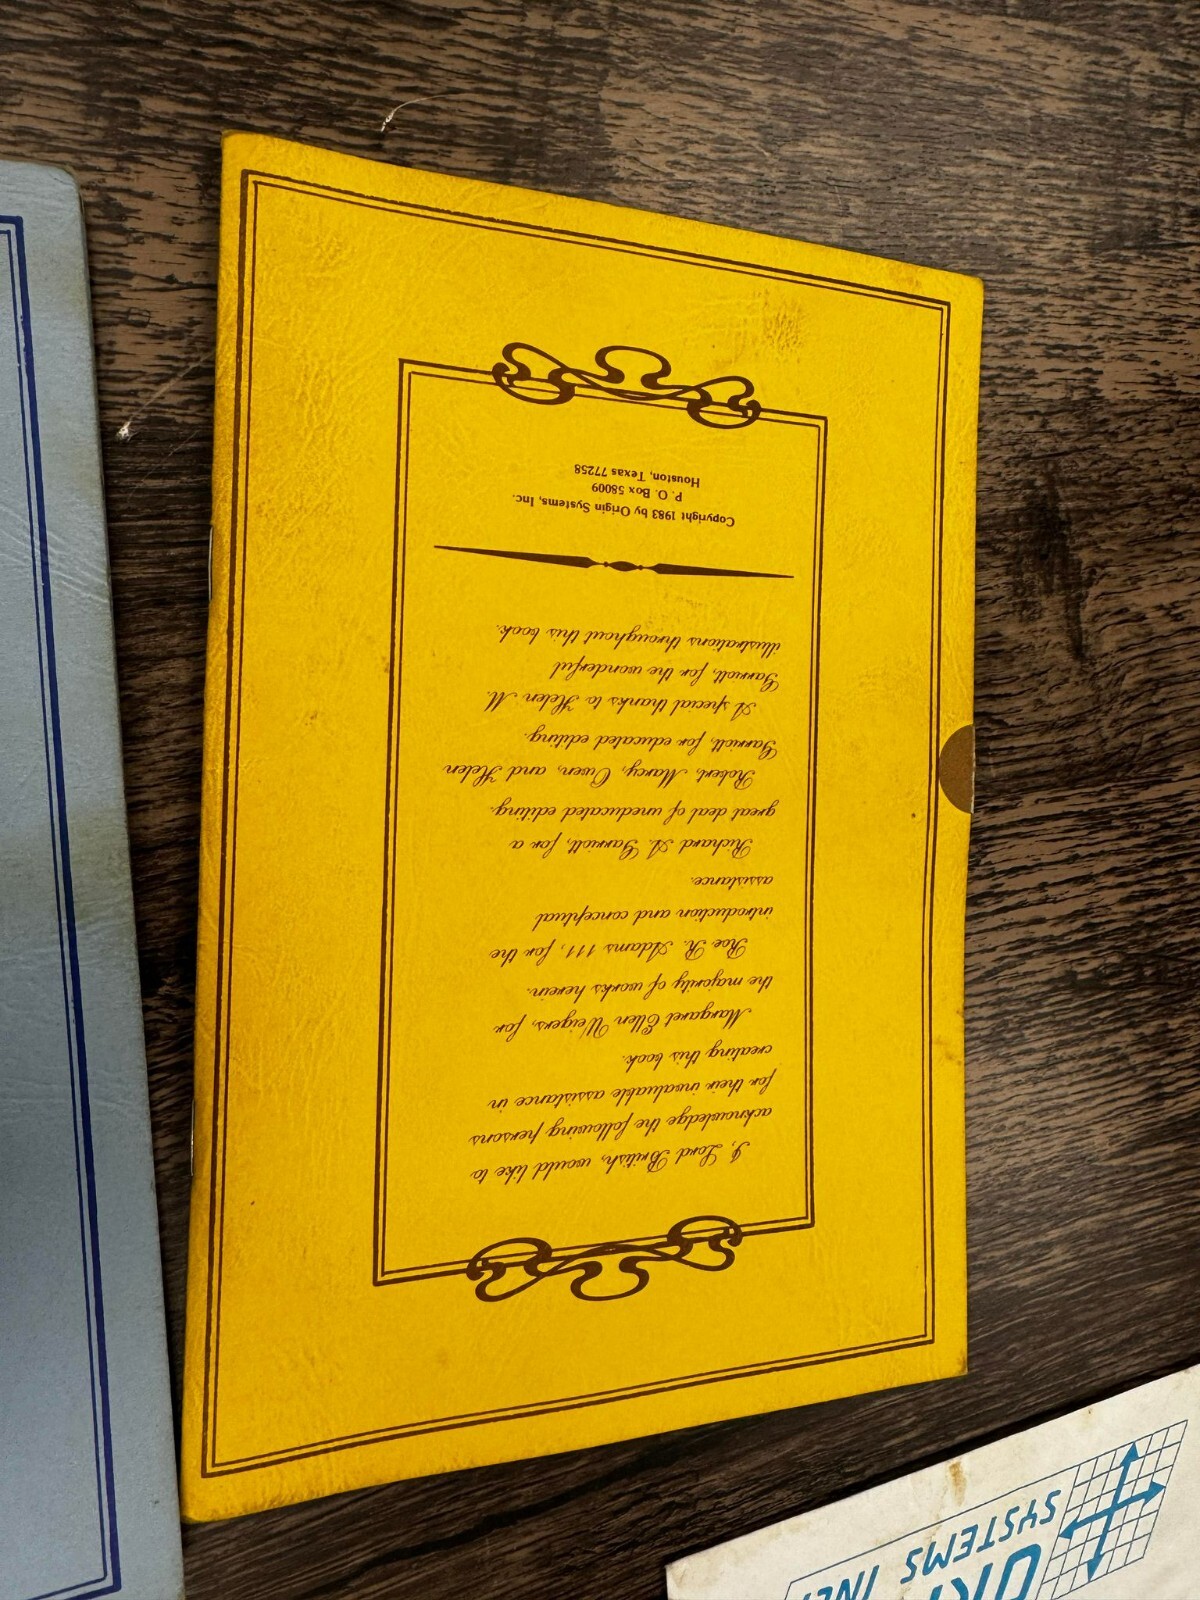 I, Lord British, would like to
acknowledge the following persons
for their invaluable assistance in
creating this book.
Margaret Ellen Weigers, for
the majority of works herein.
Roe R. Adams 111, for the
introduction and conceptual
assistance.
Richard A. Garriott, for a
great deal of uneducated editing.
Robert, Marcy, Owen, and Helen
Garriott, for educated editing.
A special thanks to Helen M.
Garriott, for the wonderful
illustrations throughout this book.
Copyright 1983 by Origin Systems, Inc.
P. O. Box 58009
Houston, Texas 77258
SYSTEMS INC.